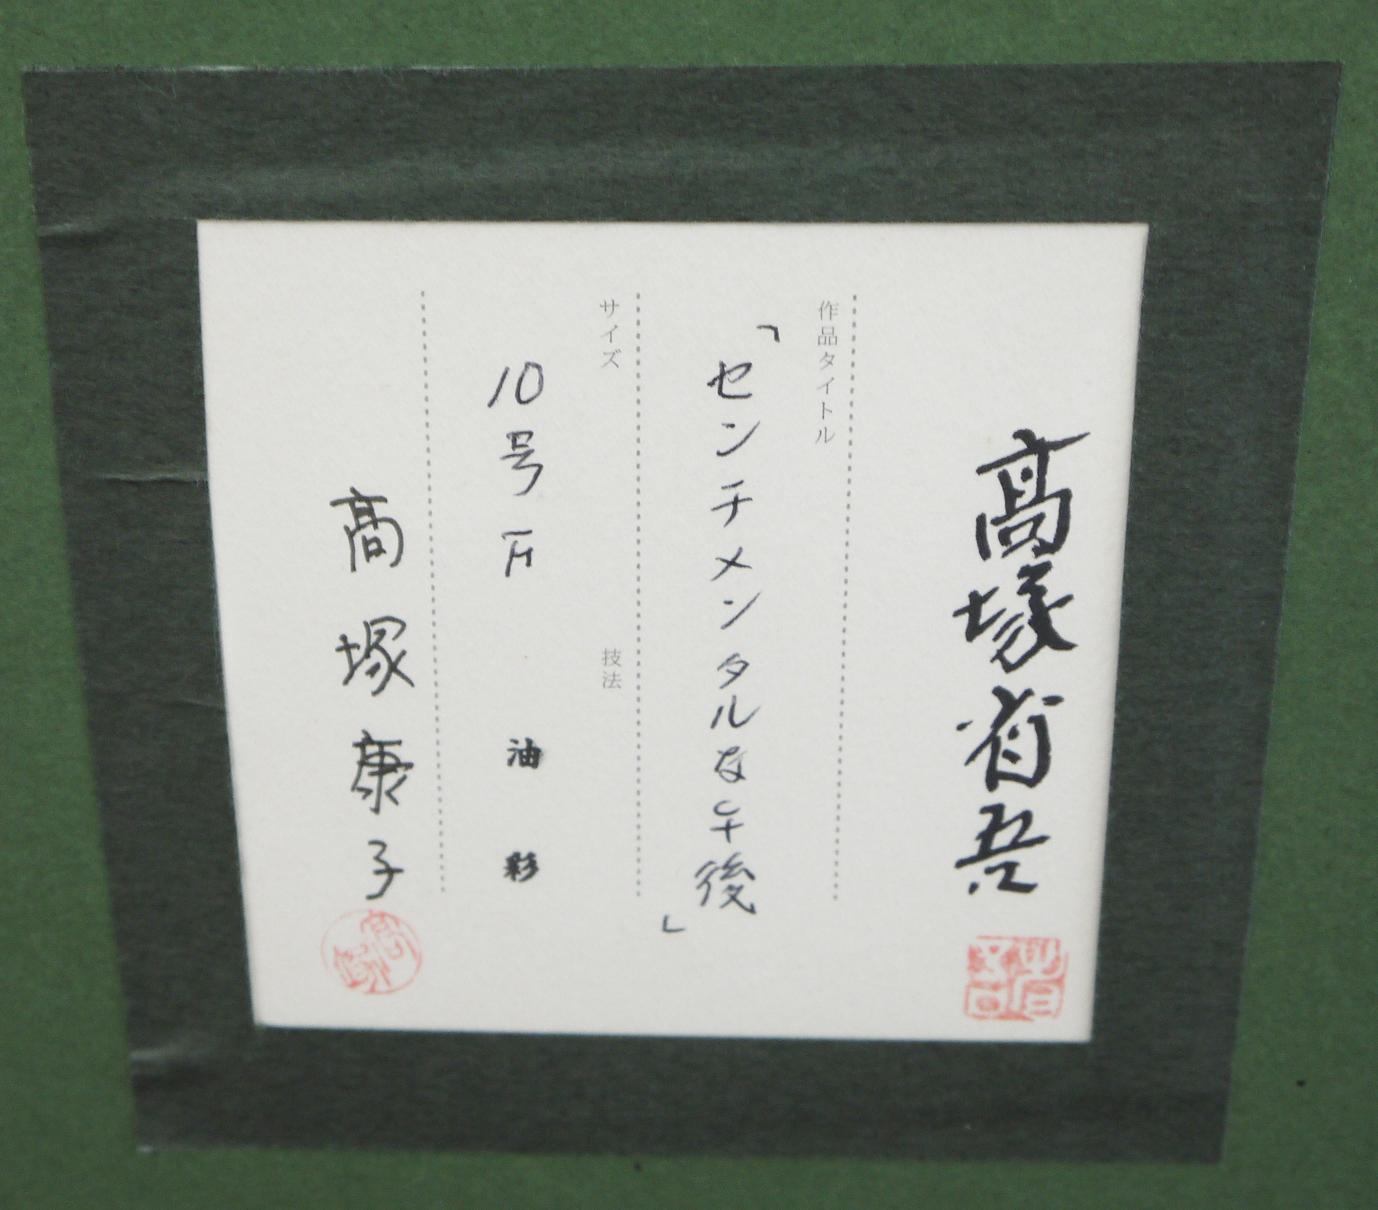 髙塚省吾
作品タイトル
「センチメンタルな午後」
サイズ
技法
10号
油彩
髙塚康子
髙塚
省吾